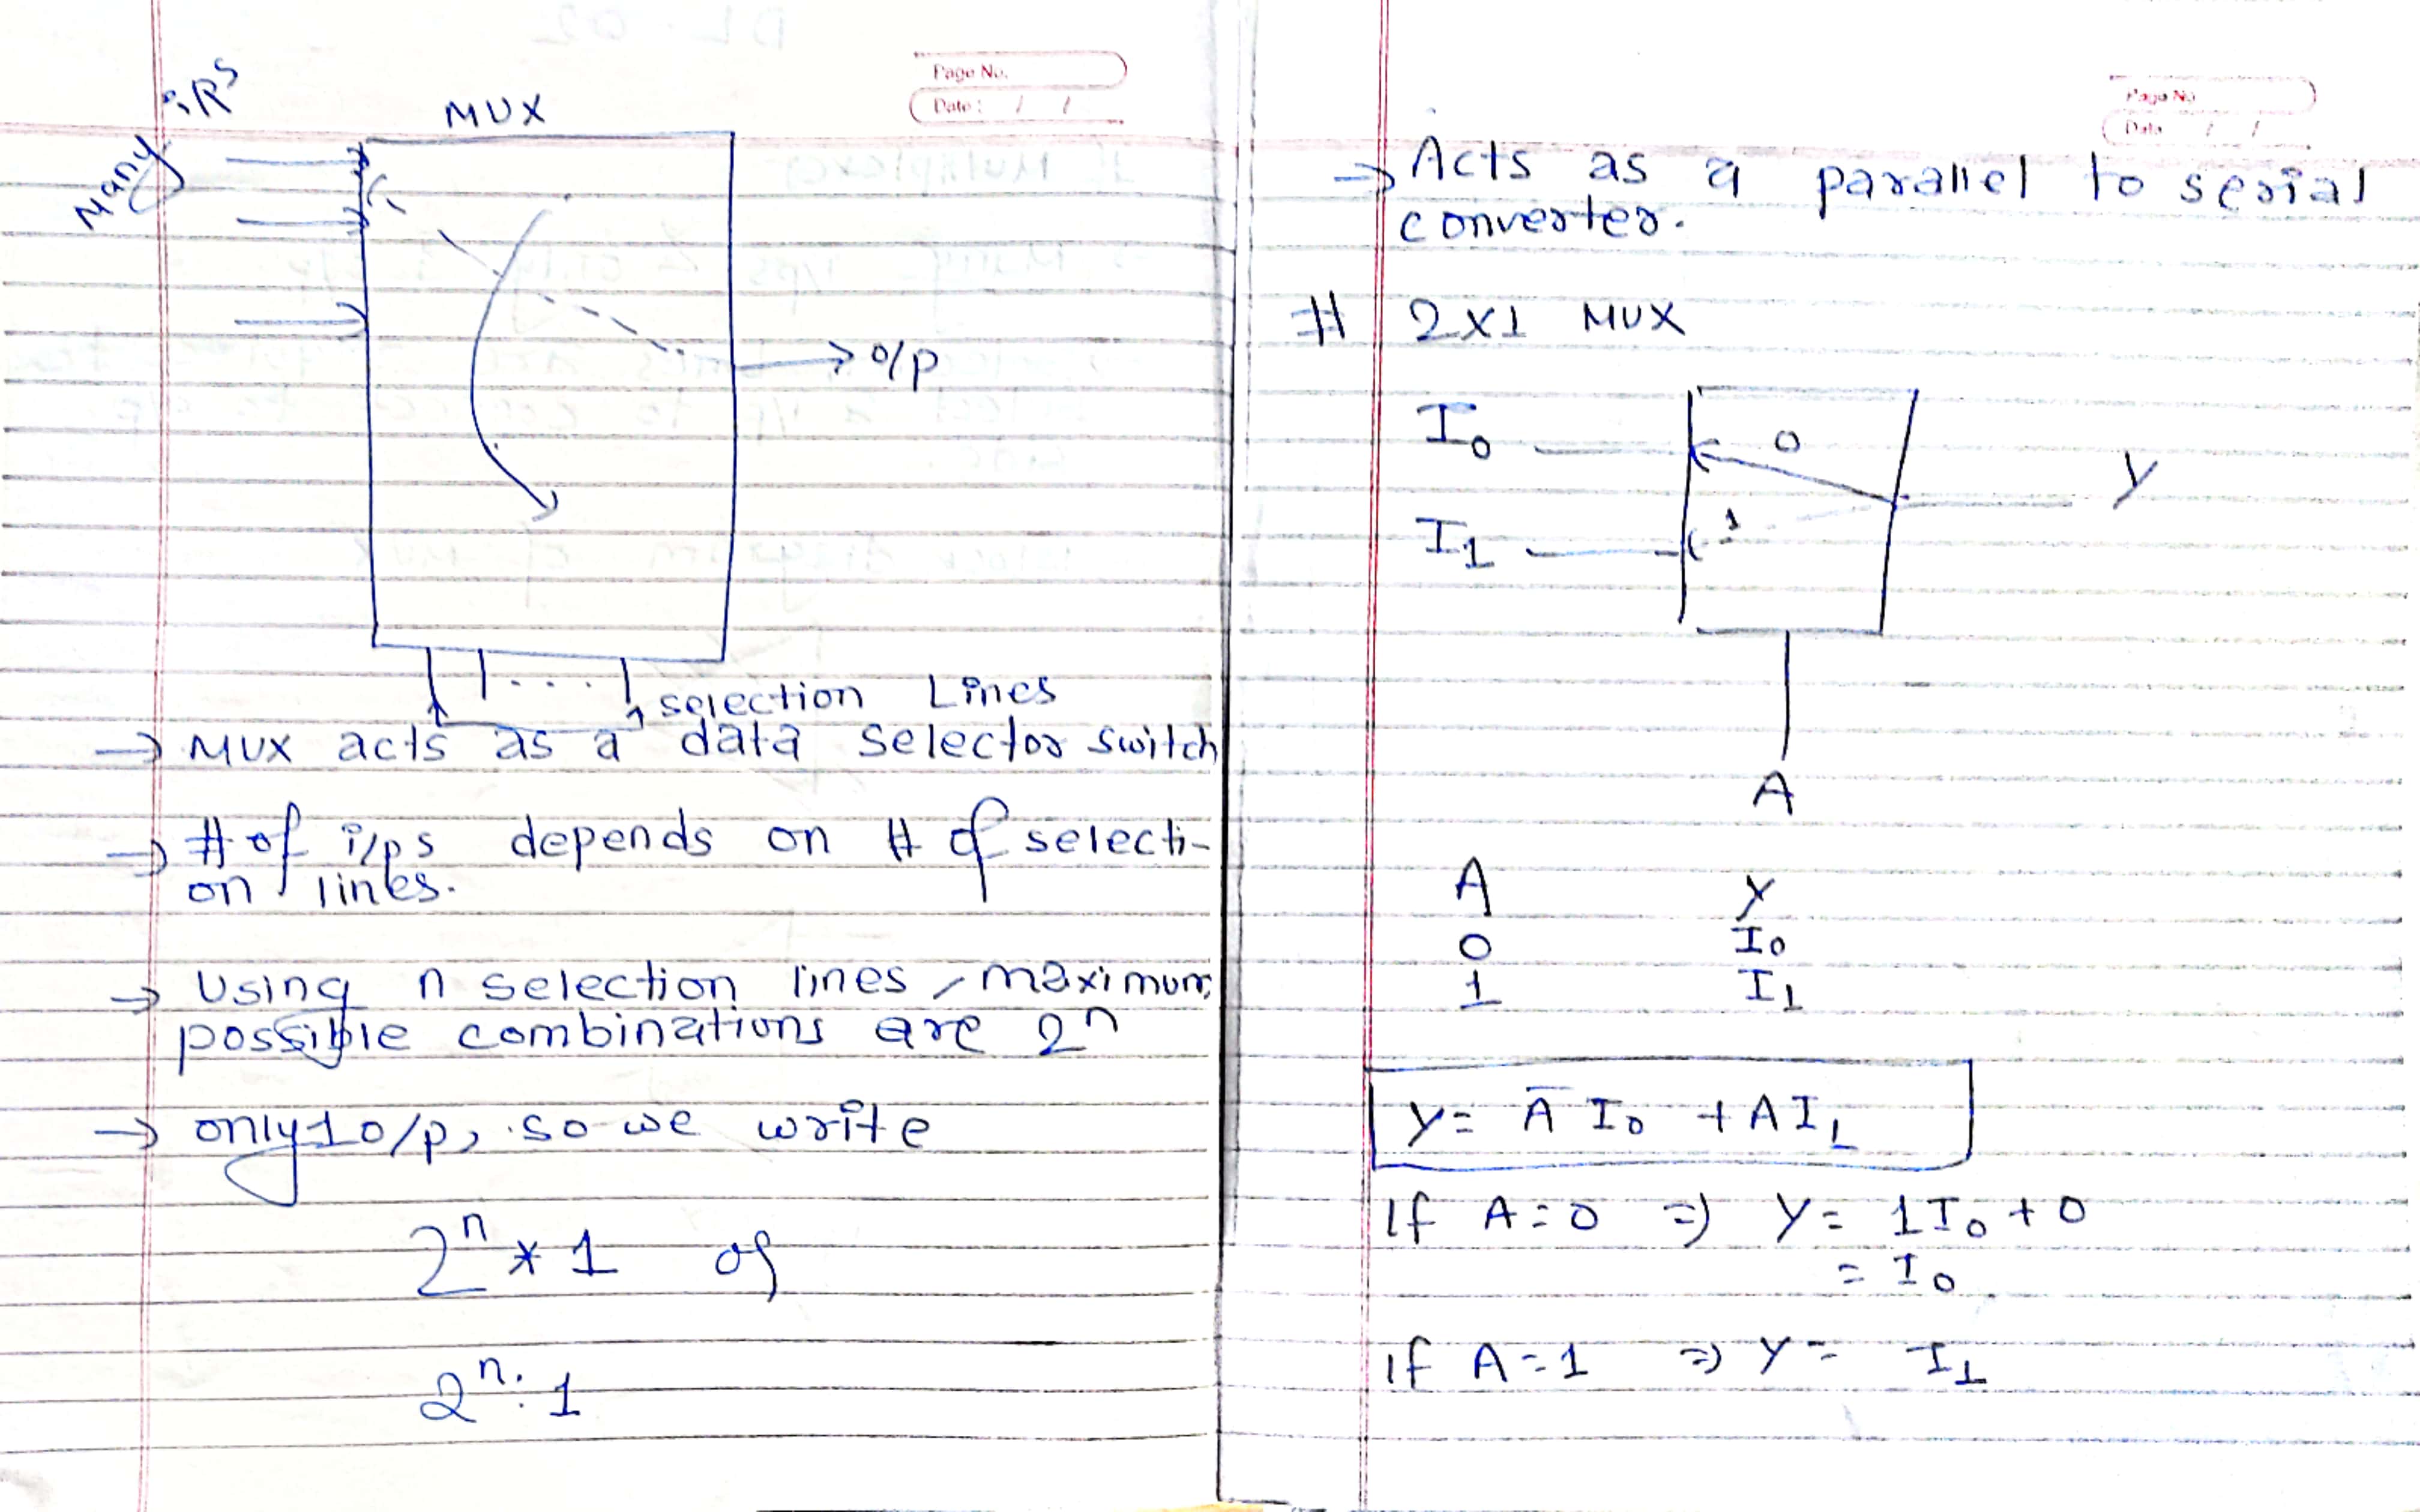 Page No.
Date: / /
Many i/Ps
MUX
o/p
selection Lines
→ MUX acts as a data selector switch
→ # of i/ps depends on # of selecti-
on lines.
→ Using n selection lines, maximum
possible combinations are 2ⁿ
→ only 1 o/p, so we write
2ⁿ * 1 or
2ⁿ : 1
Page No
Data / /
→ Acts as a parallel to serial
converter.
# 2x1 MUX
I₀ 0
Y
I₁ 1
A
A Y
0 I₀
1 I₁
Y = A̅ I₀ + A I₁
If A = 0 => Y = 1 I₀ + 0
= I₀
If A = 1 => Y = I₁